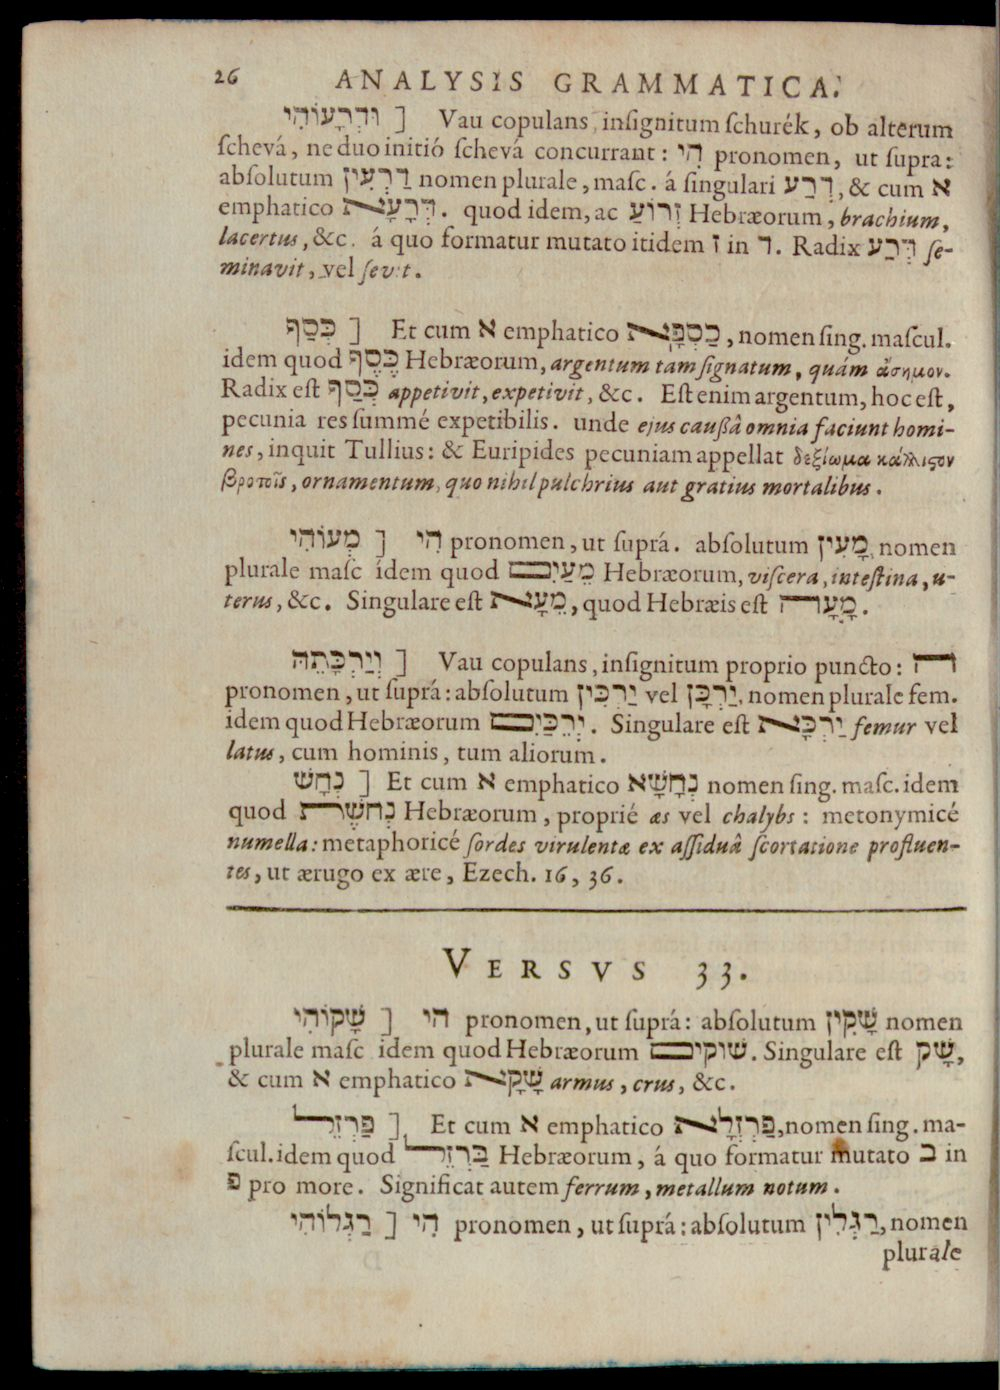 26 ANALYSIS GRAMMATICA.
וּדְרָעוֹהִי ] Vau copulans insignitum schurék, ob alterum
schevá, ne duo initió schevá concurrant: הִי pronomen, ut supra:
absolutum דַרְעִין nomen plurale, masc. á singulari דְרַע, & cum א
emphatico דְּרָעָא. quod idem, ac זְרוֹעַ Hebræorum, brachium,
lacertus, &c. á quo formatur mutato itidem ז in ד. Radix דְּרַע se-
minavit, vel sevit.
כְּסַף ] Et cum א emphatico כַסְפָּא, nomen sing. mascul.
idem quod כֶּסֶף Hebræorum, argentum tam signatum, quám ἄσημον.
Radix est כְּסַף appetivit, expetivit, &c. Est enim argentum, hoc est,
pecunia res summé expetibilis. unde ejus caußâ omnia faciunt homi-
nes, inquit Tullius: & Euripides pecuniam appellat δεξίωμα κάλλιστον
βροτοῖς, ornamentum, quo nihil pulchrius aut gratius mortalibus.
מְעוֹהִי ] הִי pronomen, ut suprá. absolutum מָעִין, nomen
plurale masc idem quod מֵעַיִם Hebræorum, viscera, intestina, u-
terus, &c. Singulare est מֵעָא, quod Hebræis est מָעָה.
וְיַרְכָּתֵהּ ] Vau copulans, insignitum proprio puncto: ה
pronomen, ut suprá: absolutum יַרְכִּין vel יַרְכָּן, nomen plurale fem.
idem quod Hebræorum יְרֵכַּיִם. Singulare est יַרְכָּא femur vel
latus, cum hominis, tum aliorum.
נְחָשׁ ] Et cum א emphatico נְחָשָׁא nomen sing. masc. idem
quod נְחשֶׁת Hebræorum, proprié æs vel chalybs: metonymicé
numella: metaphoricé sordes virulentæ ex assiduâ scortatione profluen-
tes, ut ærugo ex ære, Ezech. 16, 36.
VERSVS 33.
שָׁקוֹהִי ] הי pronomen, ut suprá: absolutum שָׁקִין nomen
plurale masc idem quod Hebræorum שׁוקים. Singulare est שָׁק,
& cum א emphatico שָׁקָא armus, crus, &c.
פַּרְזֵל ] Et cum א emphatico פַּרְזְלָא, nomen sing. ma-
scul. idem quod בַּרְזֵל Hebræorum, á quo formatur mutato ב in
פ pro more. Significat autem ferrum, metallum notum.
רַגְלוֹהִי ] הִי pronomen, ut suprá: absolutum רַגְלִין, nomen
plurale